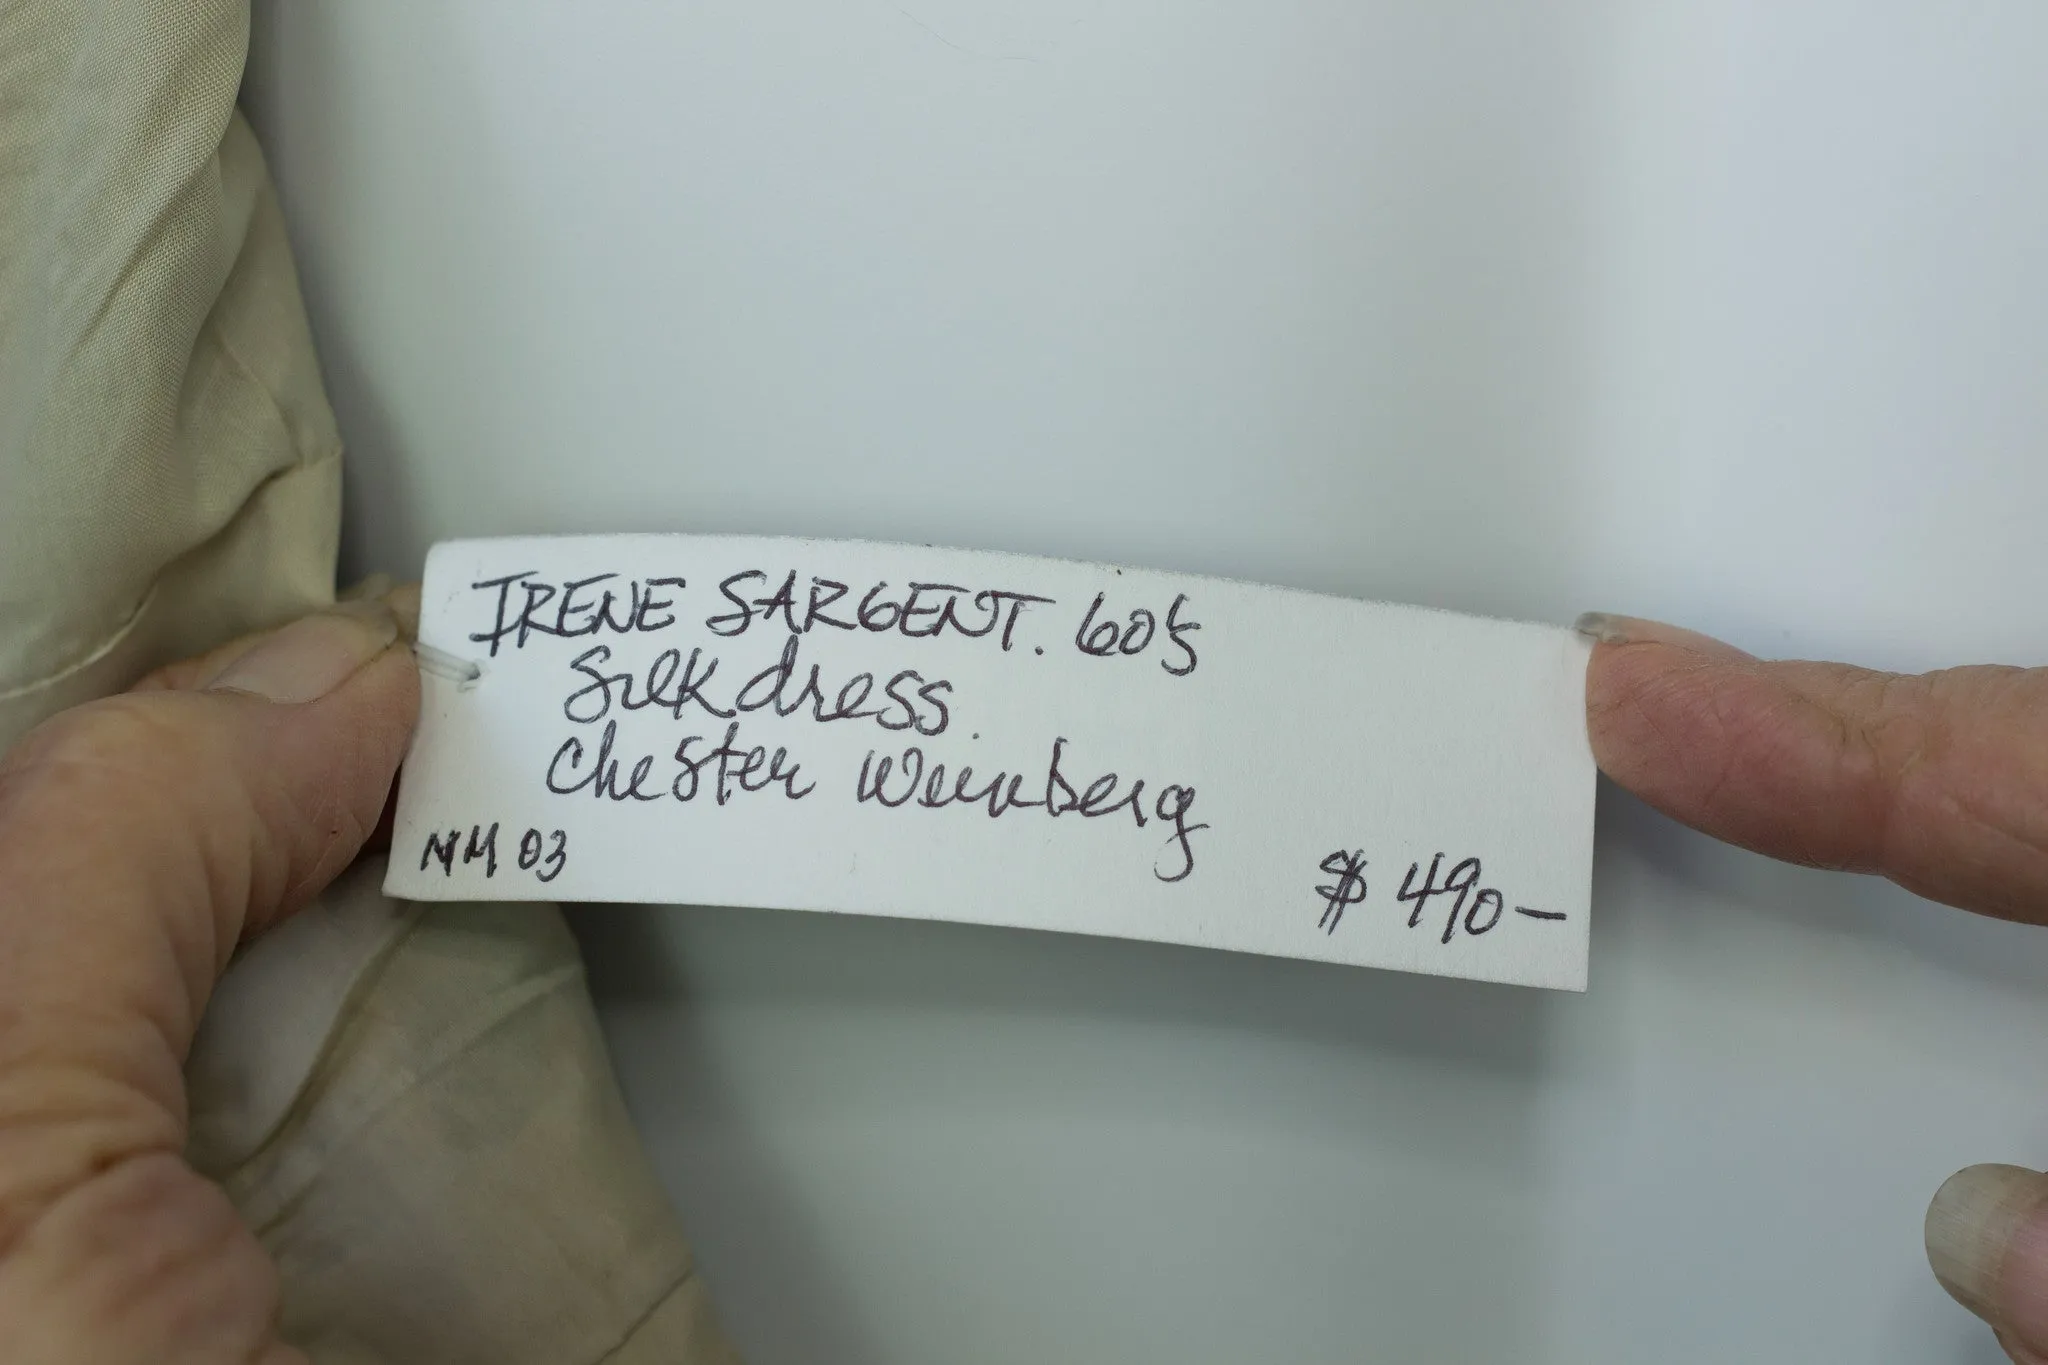 IRENE SARGENT. 60's
Silk dress.
Chester Weinberg
NM 03
$ 490—